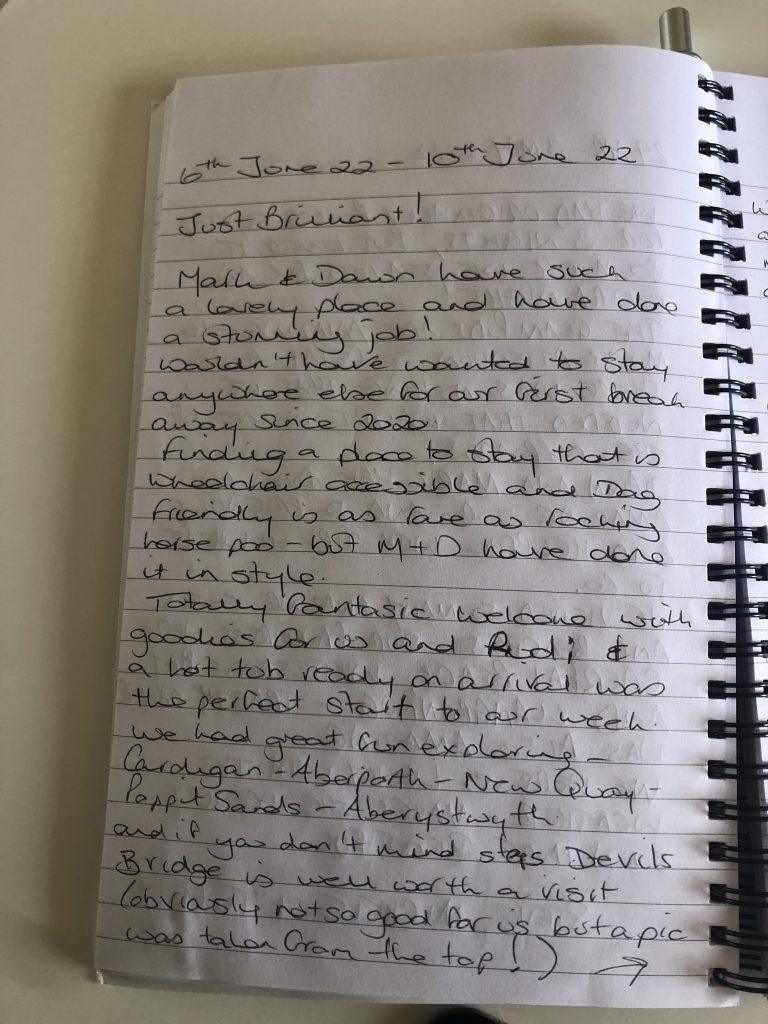 6th June 22 - 10th June 22
Just Brilliant!
Mark & Dawn have such
a lovely place and have done
a stunning job!
Wouldn't have wanted to stay
anywhere else for our first break
away since 2020.
Finding a place to stay that is
wheelchair accessible and Dog
friendly is as rare as rocking
horse poo - but M+D have done
it in style.
Totally fantasic welcome with
goodies for us and Rudi &
a hot tub ready on arrival was
the perfect start to our week.
We had great fun exploring -
Cardigan - Aberporth - New Quay -
Poppit Sands - Aberystwyth.
and if you don't mind steps Devils
Bridge is well worth a visit
(obviously not so good for us but a pic
was taken from the top!) →